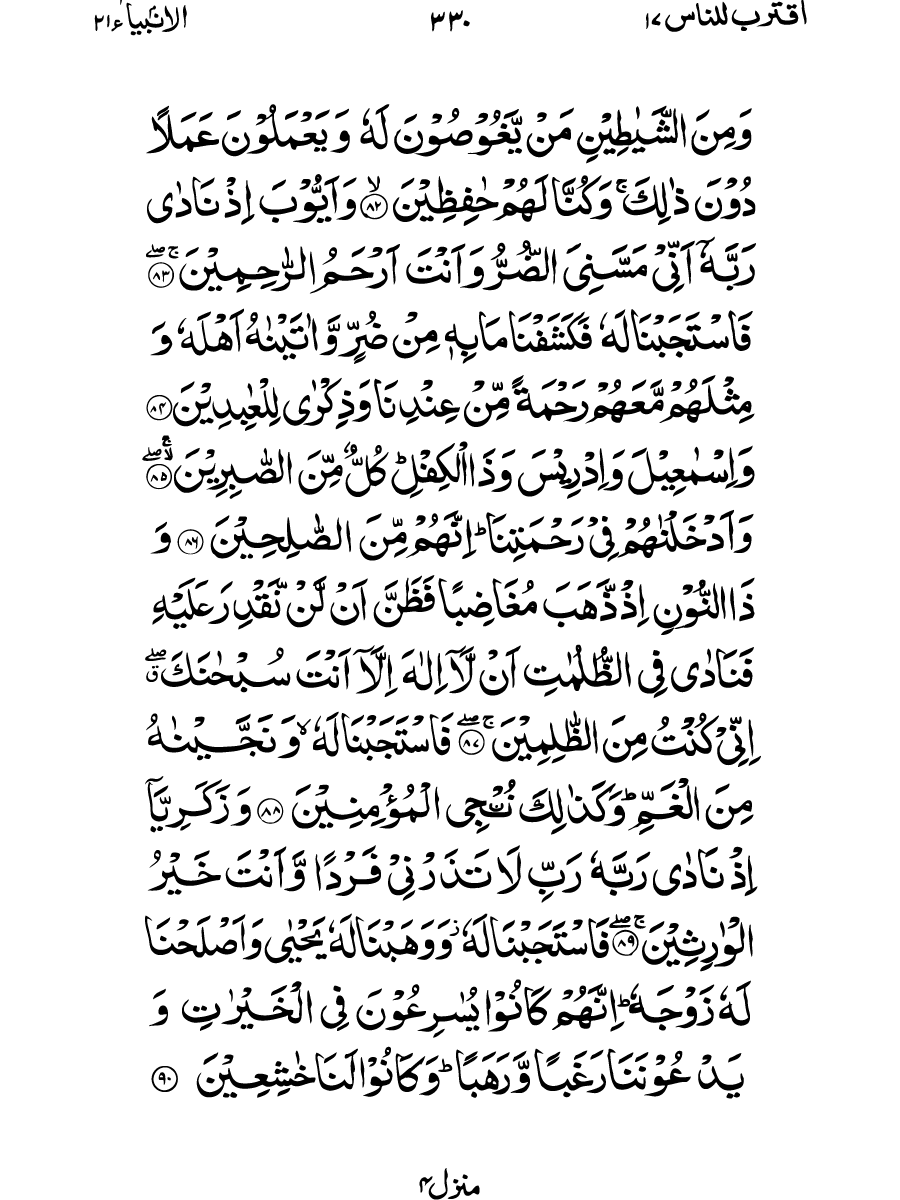 اقترب للناس ۱۷
۳۳۰
الانبیاء ۲۱
وَمِنَ الشَّيٰطِيْنِ مَنْ يَّغُوْصُوْنَ لَهٗ وَيَعْمَلُوْنَ عَمَلًا
دُوْنَ ذٰلِكَ ۚ وَكُنَّا لَهُمْ حٰفِظِيْنَ ۙ‏﴿۸۲﴾ وَاَيُّوْبَ اِذْ نَادٰى
رَبَّهٗۤ اَنِّىْ مَسَّنِىَ الضُّرُّ وَاَنْتَ اَرْحَمُ الرّٰحِمِيْنَ ۖۚ‏﴿۸۳﴾
فَاسْتَجَبْنَا لَهٗ فَكَشَفْنَا مَا بِهٖ مِنْ ضُرٍّ وَّاٰتَيْنٰهُ اَهْلَهٗ وَ
مِثْلَهُمْ مَّعَهُمْ رَحْمَةً مِّنْ عِنْدِنَا وَذِكْرٰى لِلْعٰبِدِيْنَ ﴿۸۴﴾
وَاِسْمٰعِيْلَ وَاِدْرِيْسَ وَذَا الْكِفْلِ ؕ كُلٌّ مِّنَ الصّٰبِرِيْنَ ۖۚ ﴿۸۵﴾
وَاَدْخَلْنٰهُمْ فِىْ رَحْمَتِنَا ؕ اِنَّهُمْ مِّنَ الصّٰلِحِيْنَ ﴿۸۶﴾ وَ
ذَا النُّوْنِ اِذْ ذَّهَبَ مُغَاضِبًا فَظَنَّ اَنْ لَّنْ نَّقْدِرَ عَلَيْهِ
فَنَادٰى فِى الظُّلُمٰتِ اَنْ لَّاۤ اِلٰهَ اِلَّاۤ اَنْتَ سُبْحٰنَكَ ۖق
اِنِّىْ كُنْتُ مِنَ الظّٰلِمِيْنَ ۖۚ ﴿۸۷﴾ فَاسْتَجَبْنَا لَهٗ ۙ وَنَجَّيْنٰهُ
مِنَ الْغَمِّ ؕ وَكَذٰلِكَ نُـنْجِى الْمُؤْمِنِيْنَ ﴿۸۸﴾ وَزَكَرِيَّاۤ
اِذْ نَادٰى رَبَّهٗ رَبِّ لَا تَذَرْنِىْ فَرْدًا وَّاَنْتَ خَيْرُ
الْوٰرِثِيْنَ ۖۚ ﴿۸۹﴾ فَاسْتَجَبْنَا لَهٗ ز وَوَهَبْنَا لَهٗ يَحْيٰى وَاَصْلَحْنَا
لَهٗ زَوْجَهٗ ؕ اِنَّهُمْ كَانُوْا يُسٰرِعُوْنَ فِى الْخَيْرٰتِ وَ
يَدْعُوْنَنَا رَغَبًا وَّرَهَبًا ؕ وَكَانُوْا لَنَا خٰشِعِيْنَ ﴿۹۰﴾
منزل ۴